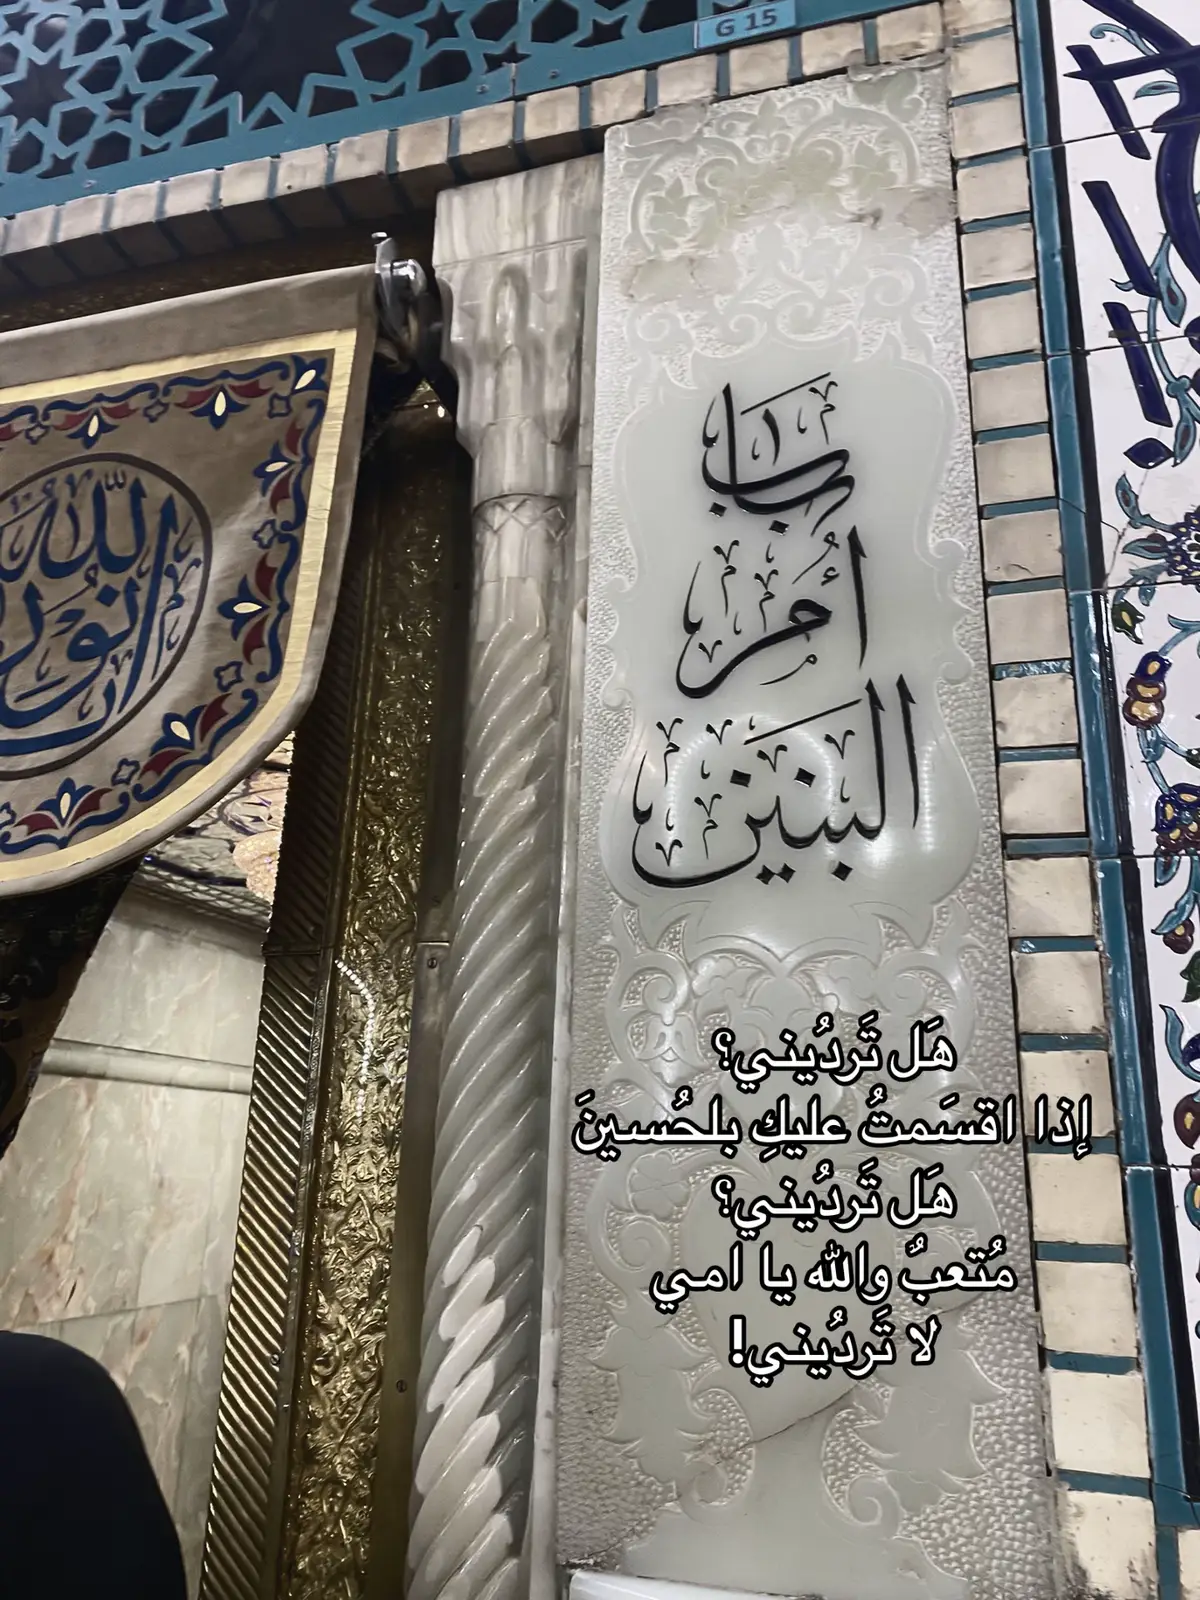 G 15
باب
أم
البنين
الله
نور
هَل تَردُيني؟
إذا اقسَمتُ عليكِ بلحُسينَ
هَل تَردُيني؟
مُتعبٌ والله يا امي
لا تَردُيني!